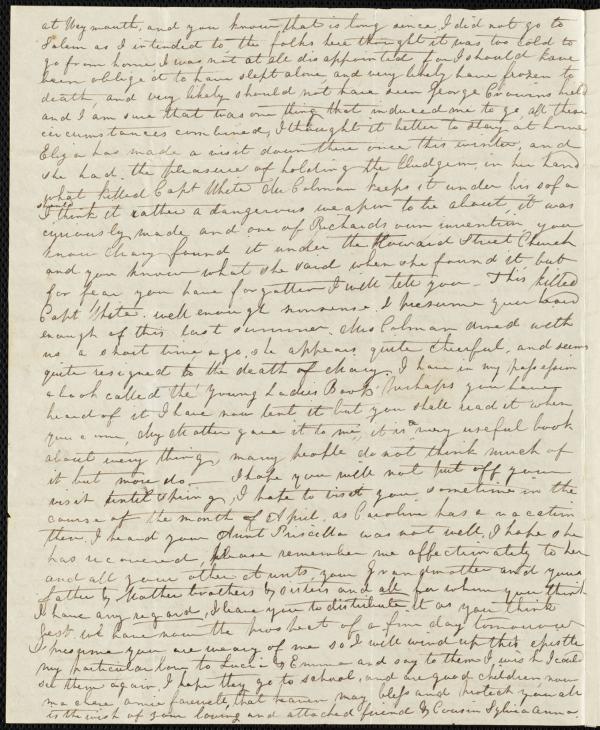 at Weymouth, and you know that is long since, I did not go to
Salem as I intended to, the folks here thought it was too cold to
go from home, I was not at all disappointed, for I should have
been obliged to have slept alone, and very likely have frozen to
death, and very likely should not have seen George Crownins held
and I am sure that was one thing that induced me to go, all these
circumstances combined, I thought it better to stay at home
Eliza has made a visit down there once this winter, and
she had the pleasure of holding the bludgeon, in her hand
what killed Capt White Mr Colman keeps it under his sofa
I should think it rather a dangerous weapon to lie about, it was
curiously made and one of Richards own invention you
know Mary found it under the Howard Street Church
and you know what she said when she found it, but
for fear you have forgotten I will tell you - This killed
Capt White. well enough nonsense. I presume you heard
enough of this last summer. Mrs Colman dined with
us a short time ago, she appears quite cheerful, and seems
quite resigned to the death of Mary. I have in my possession
a book called the Young Ladies Book perhaps you have
heard of it I have now lent it but you shall read it when
you come, My Mother gave it to me, it is a very useful book
about every thing, many people do not think much of
it but more do. I hope you will not put off your
visit until Spring, I hope to visit you sometime in the
course of the month of April. as Caroline has a vacation
then. I heard your Aunt Priscilla was not well. I hope she
has recovered, please remember me affectionately to her
and all your other Aunts, your Grandmother and your
Father & Mother brothers & sisters and all for whom you think
I have any regard, I leave you to distribute it as you think
best. we have now the prospect of a fine day tomorrow
I presume you are weary of me so I will wind up this epistle
my particular love to Lucia & Emma and say to them I wish I could
see them again, I hope they go to school, and are good children, now
ma chere amie farewell, that heaven may bless and protect you all
is the wish of your loving and attached friend & Cousin Sylvia Anna.